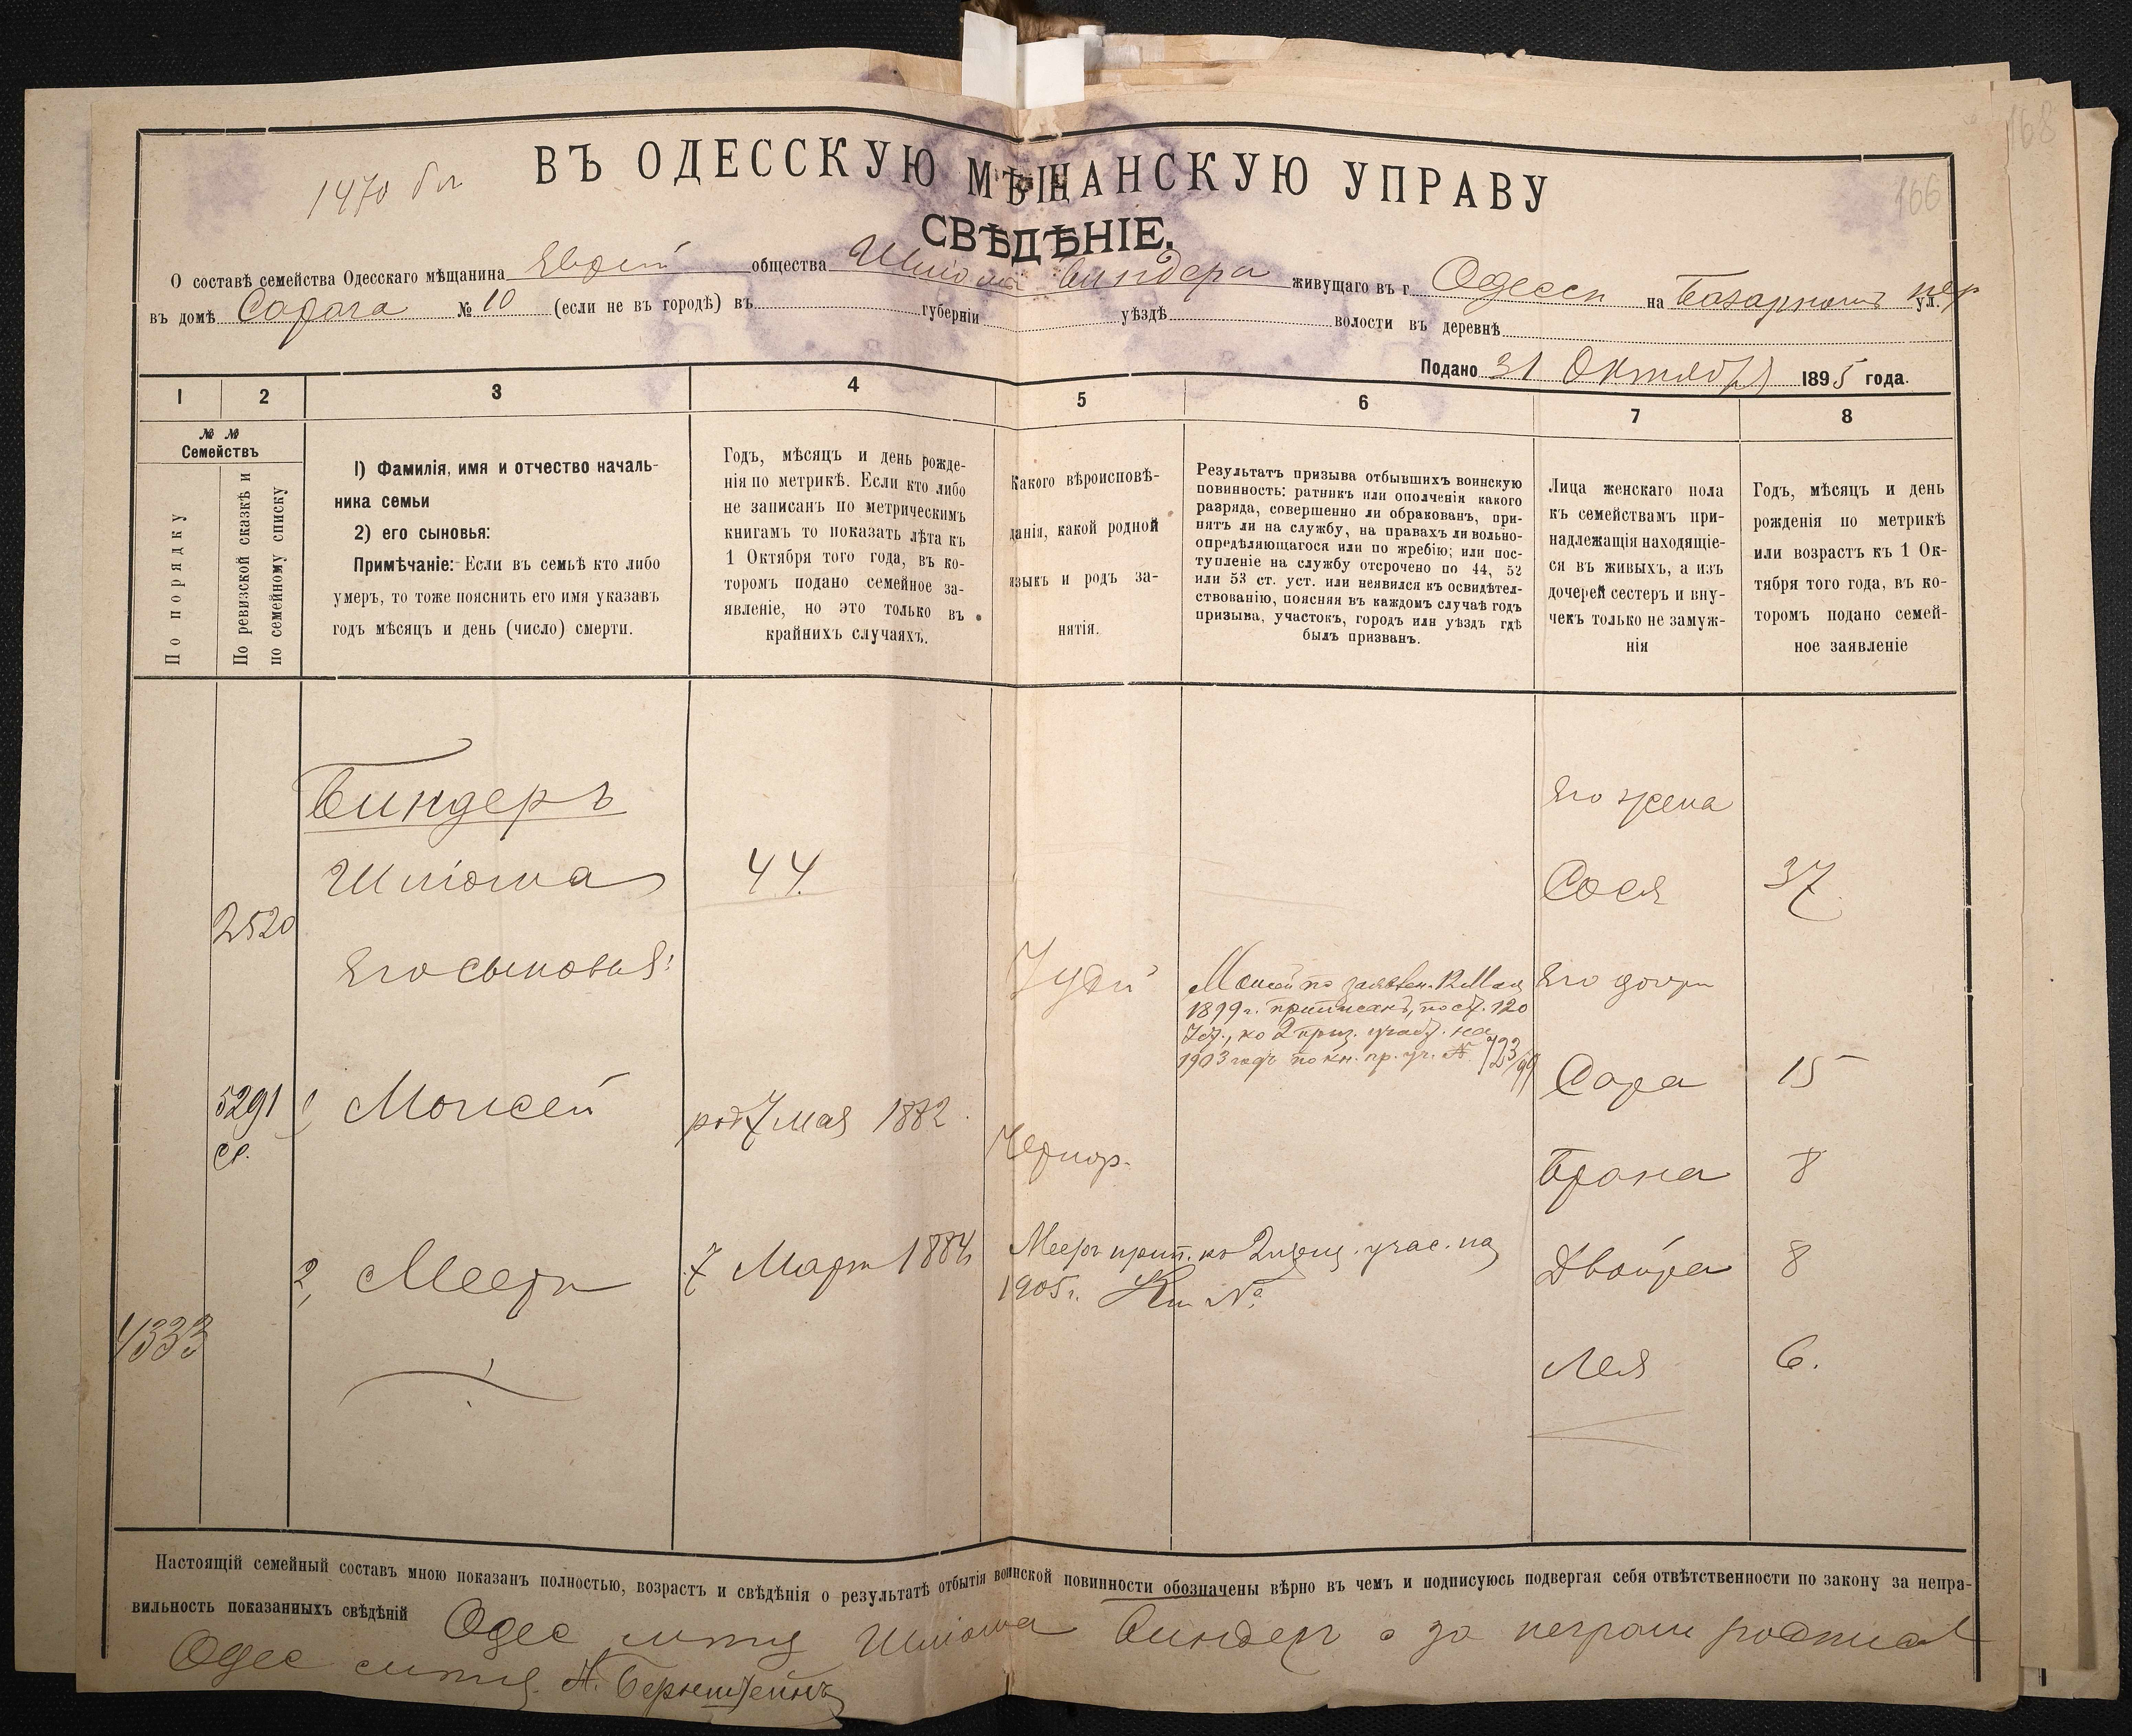 168
166
1470
ВЪ ОДЕССКУЮ МѢЩАНСКУЮ УПРАВУ
СВѢДѢНІЕ.
О составѣ семейства Одесскаго мѣщанина Еврей общества Шліома Биндера живущаго въ г. Одессѣ на Базарномъ пер ул.
въ домѣ № 10 (если не въ городѣ) въ губерніи уѣздѣ волости въ деревнѣ
Подано 31 Октября 1895 года.
1 2 3 4 5 6 7 8
№ № Семействъ
По порядку
По ревизской сказкѣ и по семейному списку
1) Фамилія, имя и отчество началь-
ника семьи
2) его сыновья:
Примѣчаніе: Если въ семьѣ кто либо
умеръ, то тоже пояснить его имя указавъ
годъ мѣсяцъ и день (число) смерти.
Годъ, мѣсяцъ и день рожде-
нія по метрикѣ. Если кто либо
не записанъ по метрическимъ
книгамъ то показать лѣта къ
1 Октября того года, въ ко-
торомъ подано семейное за-
явленіе, но это только въ
крайнихъ случаяхъ.
Какого вѣроисповѣ-
данія, какой родной
языкъ и родъ за-
нятія.
Результатъ призыва отбывшихъ воинскую
повинность: ратникъ или ополченія какого
разряда, совершенно ли обракованъ, при-
нятъ ли на службу, на правахъ ли вольно-
опредѣляющагося или по жребію; или пос-
тупленіе на службу отсрочено по 44, 52
или 53 ст. уст. или неявился къ освидѣтел-
ствованію, поясняя въ каждомъ случаѣ годъ
призыва, участокъ, городъ или уѣздъ гдѣ
былъ призванъ.
Лица женскаго пола
къ семействамъ при-
надлежащія находящіе-
ся въ живыхъ, а изъ
дочерей сестеръ и вну-
чекъ только не замуж-
нія
Годъ, мѣсяцъ и день
рожденія по метрикѣ
или возрастъ къ 1 Ок-
тября того года, въ ко-
торомъ подано семей-
ное заявленіе
Биндеръ
Его жена
Шліома 44. Сося 37
2520
Его сыновья: Іудей Его дочери
Моисей по заявлен. 12 Мая
1899 г. приписанъ, по ст. 120
Уст., ко 2 приз. участ. на
1903 годъ по кн. пр. уч. № 723/99
Сара 15
5291 1 Моисей род 7 мая 1882
ср.
Чернор. Брана 8
2, Мееръ 7 Март 1884 Мееръ прип. ко 2 призыв. учас. на
1905 г. Кн №
Двойра 8
4333
Лея 6.
Настоящій семейный составъ мною показанъ полностью, возрастъ и свѣдѣнія о результатѣ отбытія воинской повинности обозначены вѣрно въ чемъ и подписуюсь подвергая себя отвѣтственности по закону за непра-
вильность показанныхъ свѣдѣній Одес Шліома Биндеръ а за неграм росписал
Одес Н. Бернштейнъ